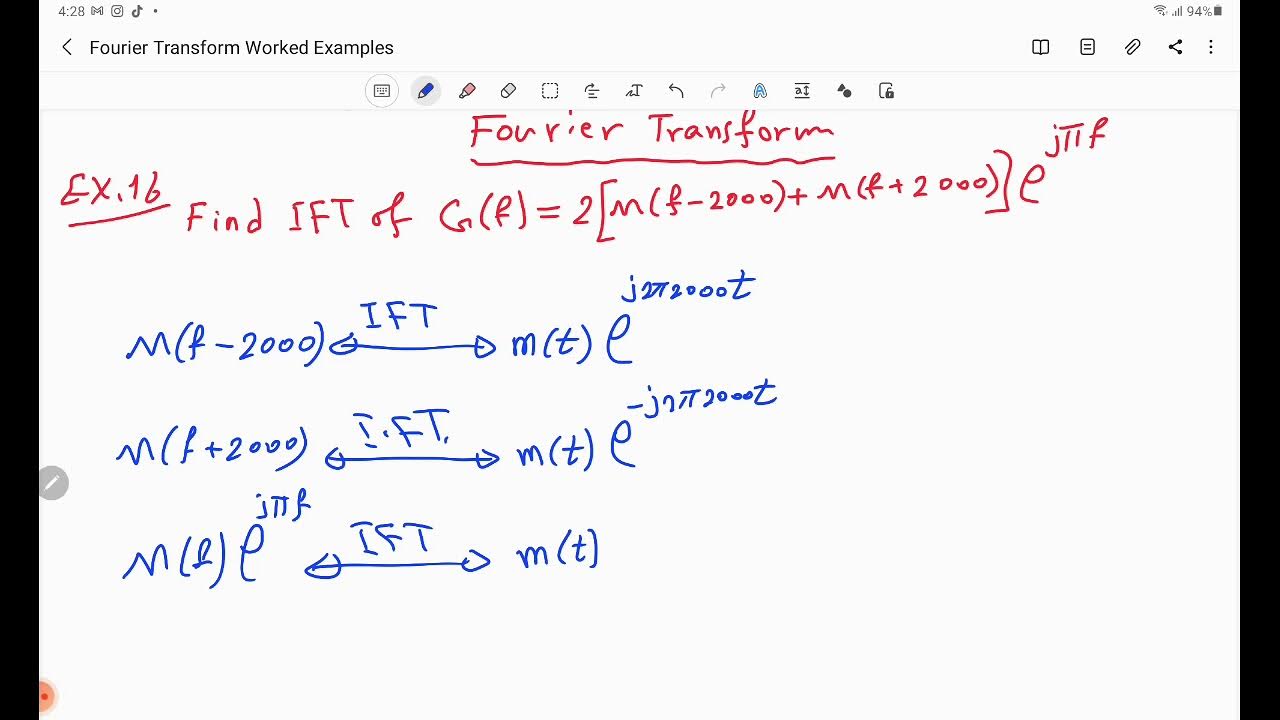 4:28 94%
Fourier Transform Worked Examples
Fourier Transform
Ex.16 Find IFT of G(f) = 2[M(f-2000)+M(f+2000)]e^jπf
M(f-2000) IFT m(t) e^j2π2000t
M(f+2000) I.FT. m(t) e^-j2π2000t
M(f) e^jπf IFT m(t)